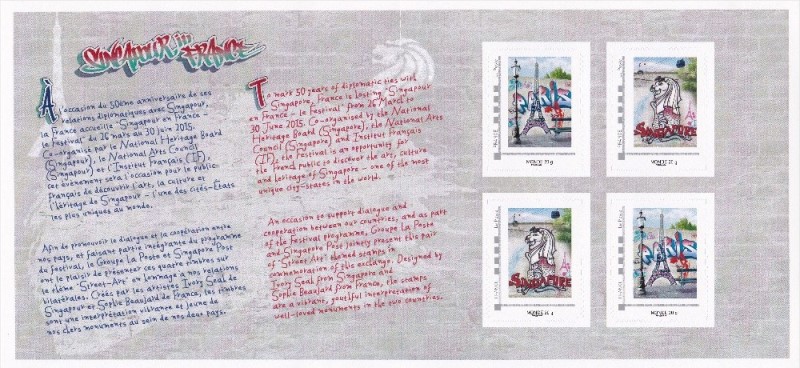 SINGAPOUR in FRANCE
À l'occasion du 50ème anniversaire de ses
relations diplomatiques avec Singapour,
la France accueille 'Singapour en France -
le Festival' du 26 mars au 30 juin 2015.
Co-organisé par le National Heritage Board
(Singapour), le National Arts Council
(Singapour) et l'Institut Français (IF),
cet évènement sera l'occasion pour le public
français de découvrir l'art, la culture et
l'héritage de Singapour - l'une des cités-États
les plus uniques au monde.
Afin de promouvoir le dialogue et la coopération entre
nos pays, et faisant partie intégrante du programme
du festival, le Groupe La Poste et Singapore Post
ont le plaisir de présenter ces quatre timbres sur
le thème 'Street-Art' en hommage à nos relations
bilatérales. Créés par les artistes Ivory Seal de
Singapour et Sophie Beaujard de France, les timbres
sont une interprétation vibrante et jeune de
nos chers monuments au sein de nos deux pays.
To mark 50 years of diplomatic ties with
Singapore, France is hosting 'Singapour
en France - le Festival' from 26 March to
30 June 2015. Co-organised by the National
Heritage Board (Singapore), the National Arts
Council (Singapore) and Institut Français
(IF), the Festival is an opportunity for
the French public to discover the art, culture
and heritage of Singapore - one of the most
unique city-states in the world.
An occasion to support dialogue and
cooperation between our countries, and as part
of the festival programme, Groupe La Poste
and Singapore Post jointly present this pair
of 'Street Art' themed stamps in
commemoration of this exchange. Designed by
Ivory Seal from Singapore and
Sophie Beaujard from France, the stamps
are a vibrant, youthful interpretation of
well-loved monuments in the two countries.
PARIS
MONDE 20 g
SINGAPORE
MONDE 20 g
SINGAPORE
MONDE 20 g
PARIS
MONDE 20 g